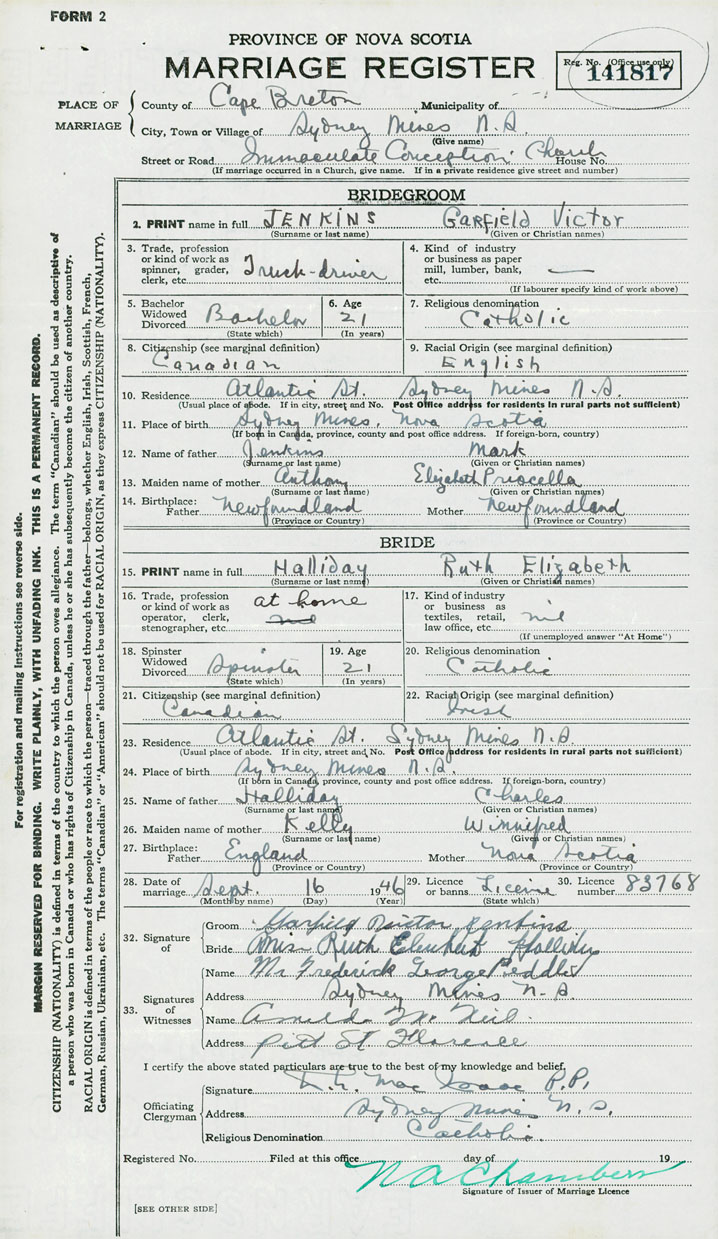 FORM 2
PROVINCE OF NOVA SCOTIA
MARRIAGE REGISTER
Reg. No. (Office use only)
141817
PLACE OF MARRIAGE
County of Cape Breton Municipality of
City, Town or Village of Sydney Mines N.S.
(Give name)
Street or Road Immaculate Conception Church House No.
(If marriage occurred in a Church, give name. If in a private residence give street and number)
BRIDEGROOM
2. PRINT name in full JENKINS Garfield Victor
(Surname or last name) (Given or Christian names)
3. Trade, profession or kind of work as spinner, grader, clerk, etc. Truck-driver
4. Kind of industry or business as paper mill, lumber, bank, etc. —
(If labourer specify kind of work above)
5. Bachelor Widowed Divorced Bachelor
(State which)
6. Age 21
(In years)
7. Religious denomination Catholic
8. Citizenship (see marginal definition) Canadian
9. Racial Origin (see marginal definition) English
10. Residence Atlantic St. Sydney Mines N.S.
(Usual place of abode. If in city, street and No. Post Office address for residents in rural parts not sufficient)
11. Place of birth Sydney Mines, Nova Scotia
(If born in Canada, province, county and post office address. If foreign-born, country)
12. Name of father Jenkins Mark
(Surname or last name) (Given or Christian names)
13. Maiden name of mother Anthony Elizabeth Priscella
(Surname or last name) (Given or Christian names)
14. Birthplace: Father Newfoundland Mother Newfoundland
(Province or Country) (Province or Country)
BRIDE
15. PRINT name in full Halliday Ruth Elizabeth
(Surname or last name) (Given or Christian names)
16. Trade, profession or kind of work as operator, clerk, stenographer, etc. at home
17. Kind of industry or business as textiles, retail, law office, etc. nil
(If unemployed answer "At Home")
18. Spinster Widowed Divorced Spinster
(State which)
19. Age 21
(In years)
20. Religious denomination Catholic
21. Citizenship (see marginal definition) Canadian
22. Racial Origin (see marginal definition) Irish
23. Residence Atlantic St. Sydney Mines N.S.
(Usual place of abode. If in city, street and No. Post Office address for residents in rural parts not sufficient)
24. Place of birth Sydney Mines N.S.
(If born in Canada, province, county and post office address. If foreign-born, country)
25. Name of father Halliday Charles
(Surname or last name) (Given or Christian names)
26. Maiden name of mother Kelly Winnifred
(Surname or last name) (Given or Christian names)
27. Birthplace: Father England Mother Nova Scotia
(Province or Country) (Province or Country)
28. Date of marriage Sept. 16 1946
(Month by name) (Day) (Year)
29. Licence or banns Licence
(State which)
30. Licence number 83768
32. Signature of
Groom Garfield Victor Jenkins
Bride Miss Ruth Elizabeth Halliday
33. Signatures of Witnesses
Name Mr Frederick George Peddle
Address Sydney Mines N.S.
Name Arnold Mc Neil
Address Pitt St Florence
I certify the above stated particulars are true to the best of my knowledge and belief.
Officiating Clergyman
Signature Mac Isaac P.P.
Address Sydney Mines N.S.
Religious Denomination Catholic
Registered No. Filed at this office day of 19
N A Chambers
Signature of Issuer of Marriage Licence
[SEE OTHER SIDE]
For registration and mailing instructions see reverse side.
MARGIN RESERVED FOR BINDING. WRITE PLAINLY, WITH UNFADING INK. THIS IS A PERMANENT RECORD.
CITIZENSHIP (NATIONALITY) is defined in terms of the country to which the person owes allegiance. The term "Canadian" should be used as descriptive of
a person who was born in Canada or who has rights of Citizenship in Canada, unless he or she has subsequently become the citizen of another country.
RACIAL ORIGIN is defined in terms of the people or race to which the person—traced through the father—belongs, whether English, Irish, Scottish, French,
German, Russian, Ukrainian, etc. The terms "Canadian" or "American" should not be used for RACIAL ORIGIN, as they express CITIZENSHIP (NATIONALITY).